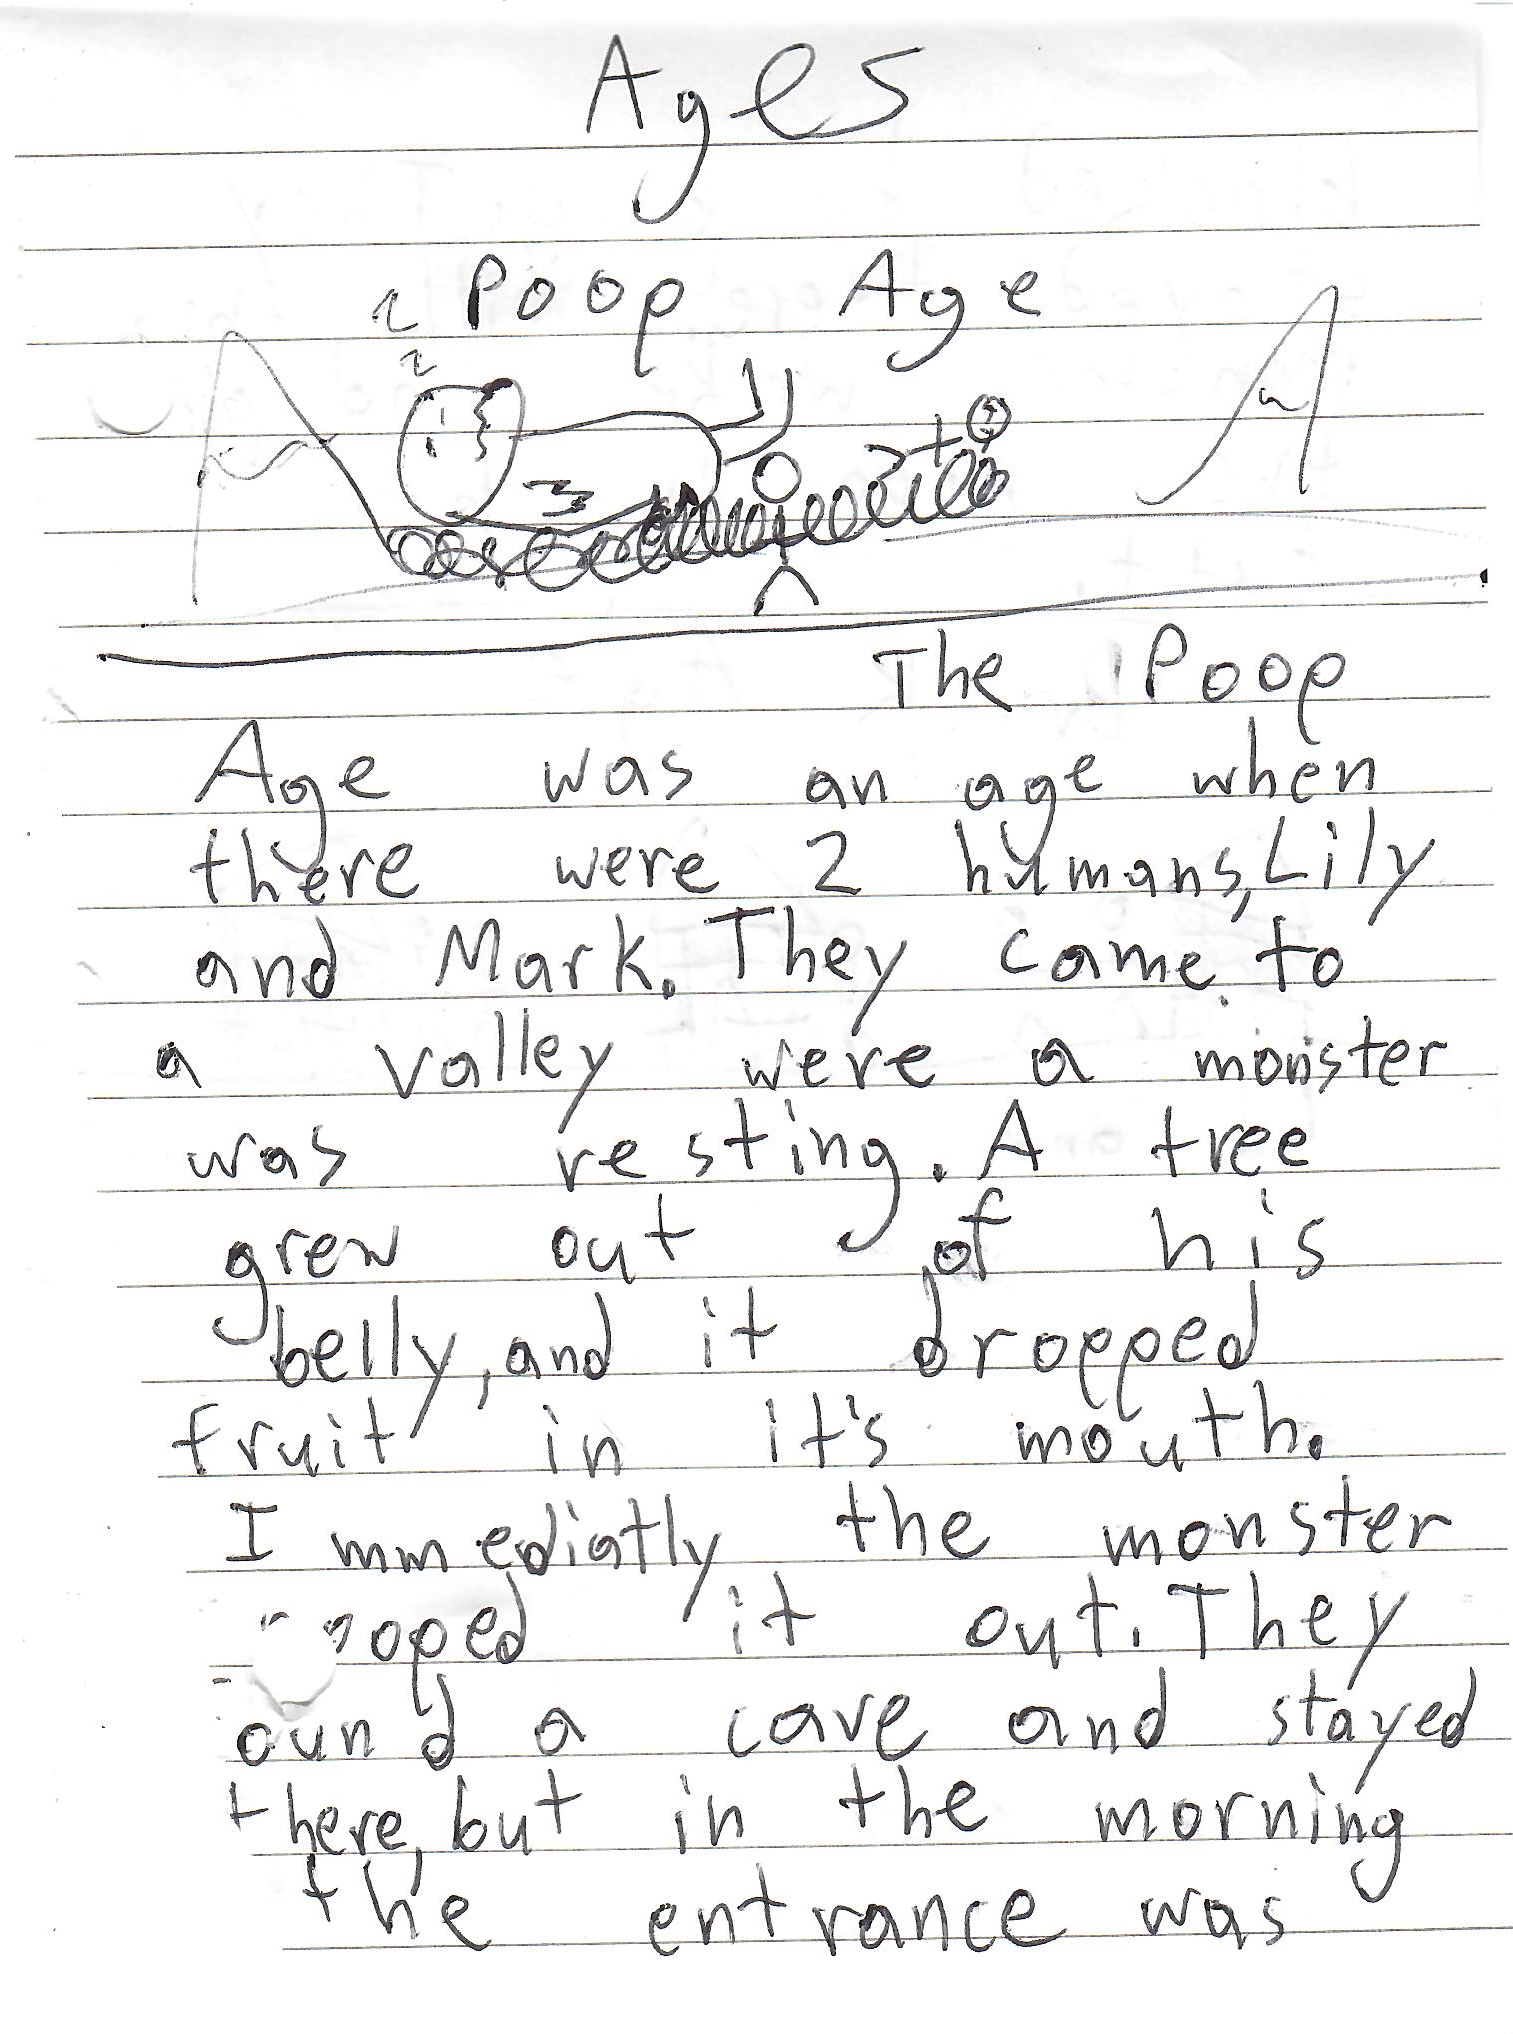 Ages
Poop Age
The Poop
Age was an age when
there were 2 humans, Lily
and Mark. They came to
a valley were a monster
was resting. A tree
grew out of his
belly, and it dropped
fruit in it's mouth.
Immediatly the monster
it out. They
a cave and stayed
there, but in the morning
the entrance was